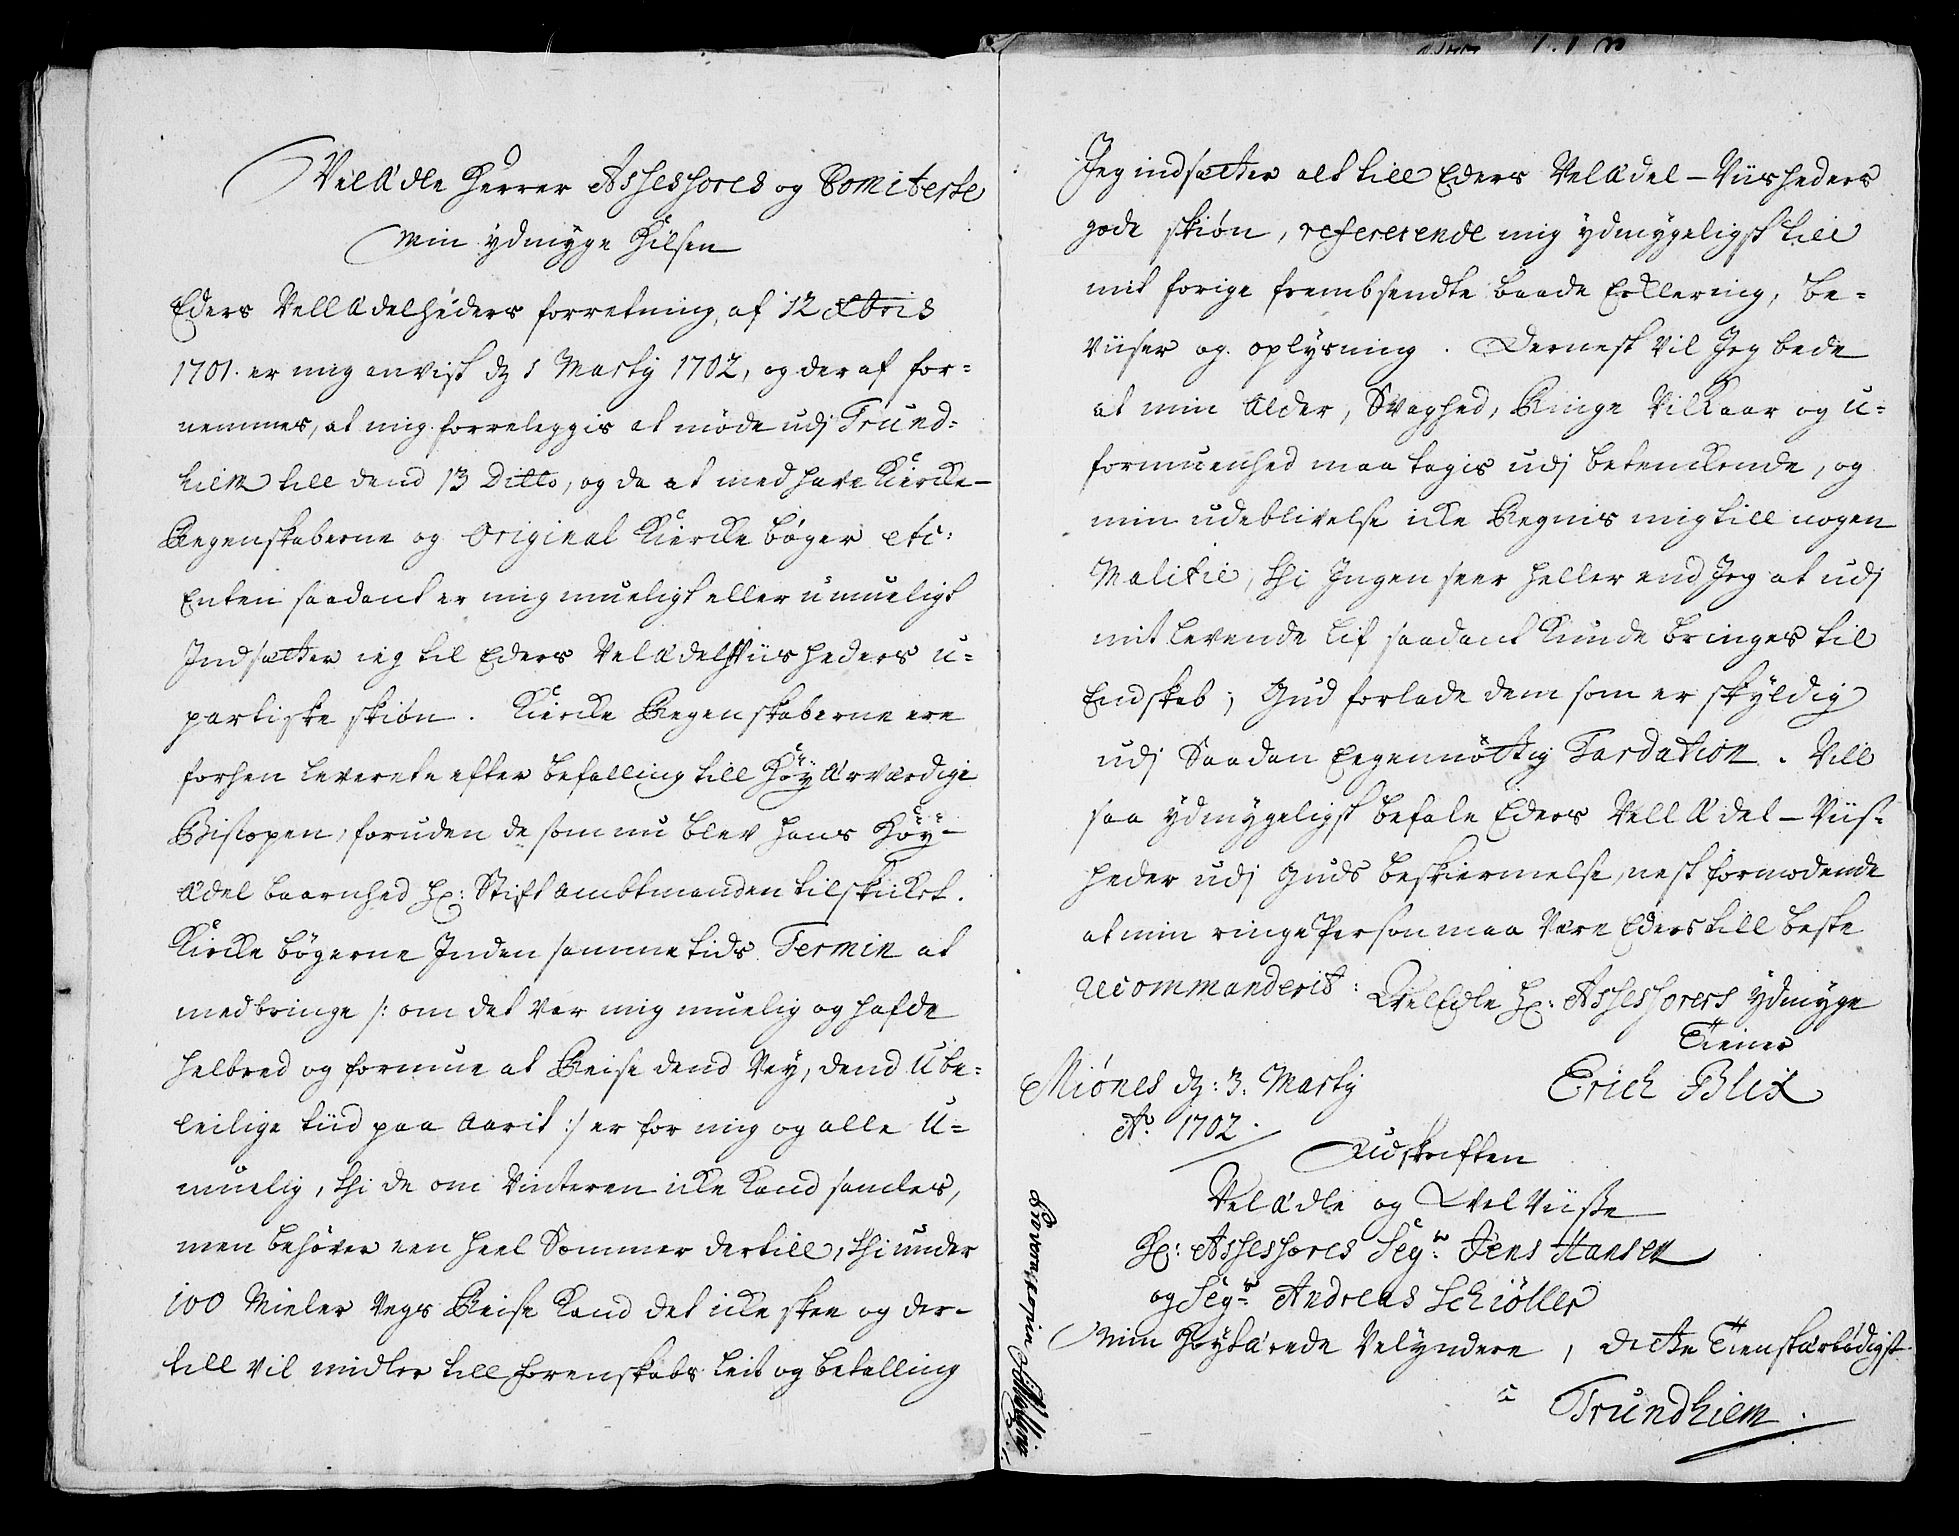 VelÆdle Herrer Assessores og Comiterte
Min ydmyge Hilsen
Eders VellÆdelheders forretning, af 12 Xbris
1701. er mig anvist dz 1 Marty 1702, og der af for-
nemmes, at mig forreleggis at møde udj Trund-
hiem till dend 13 Ditto, og da at med have Kircke-
Regenskaberne og Original Kircke bøger etc:
Enten saadant er mig mueligt eller umueligt
Indsætter ieg til Eders VelÆdelViisheders u-
partiske skiøn. Kircke Regenskaberne ere
forhen leverete efter befalling till Høy Ærværdige
Biscopen, foruden de som nu blev hans Høy-
Ædel baarnhed Hr: Stiftambtmanden tilskicket.
Kircke bøgerne Inden samme tids Termin at
medbringe /: om det var mig muelig og hafde
helbred og formue at Reise dend Vey, dend Ube-
leilige tiid paa Aarit :/ er for mig og alle U-
muelig, thi de om Vinteren icke kand samles,
men behøver een heel Sommer dertill, thi under
100 Mieler Vegs Reise kand det icke skee og der-
till vil midler till forenskabs leie og betalling
Jeg indsætter alt till Eders VelÆdel-Viisheders
gode skiøn, refererende mig ydmygeligst till
mit forige frembsendte baade Erklering, be-
viiser og oplysning. Dernest vil Jeg bede
at min Alder, Svaghed, Ringe Vilkaar og u-
formuenhed maa tagis udj betenckende, og
min udeblivelse icke Regnis mig till nogen
Malitie, thi Ingen seer heller end Jeg at udj
mit levende lif saadant kunde bringes til
Endskab; Gud forlade dem som er skyldig
udj Saadan Eegennøttig Tardation. Vill
saa ydmygeligst befale Eders VellÆdel-Viis-
heder udj Guds beskiermelse, nest formodende
at min ringe Person maa være Eders till beste
recommanderit: VelEdle Hr: Assessorers ydmyge
Tiener
Miønes dz: 3. Marty Erich Blix
Ao. 1702.
Udskriften
VelÆdle og VelViise
Hr: Assessores Segr. Jens Hansen
og Segr. Andreas Schiøller
Min Høytærede Velyndere, dette Tienstærbødigst
i Trundhiem.